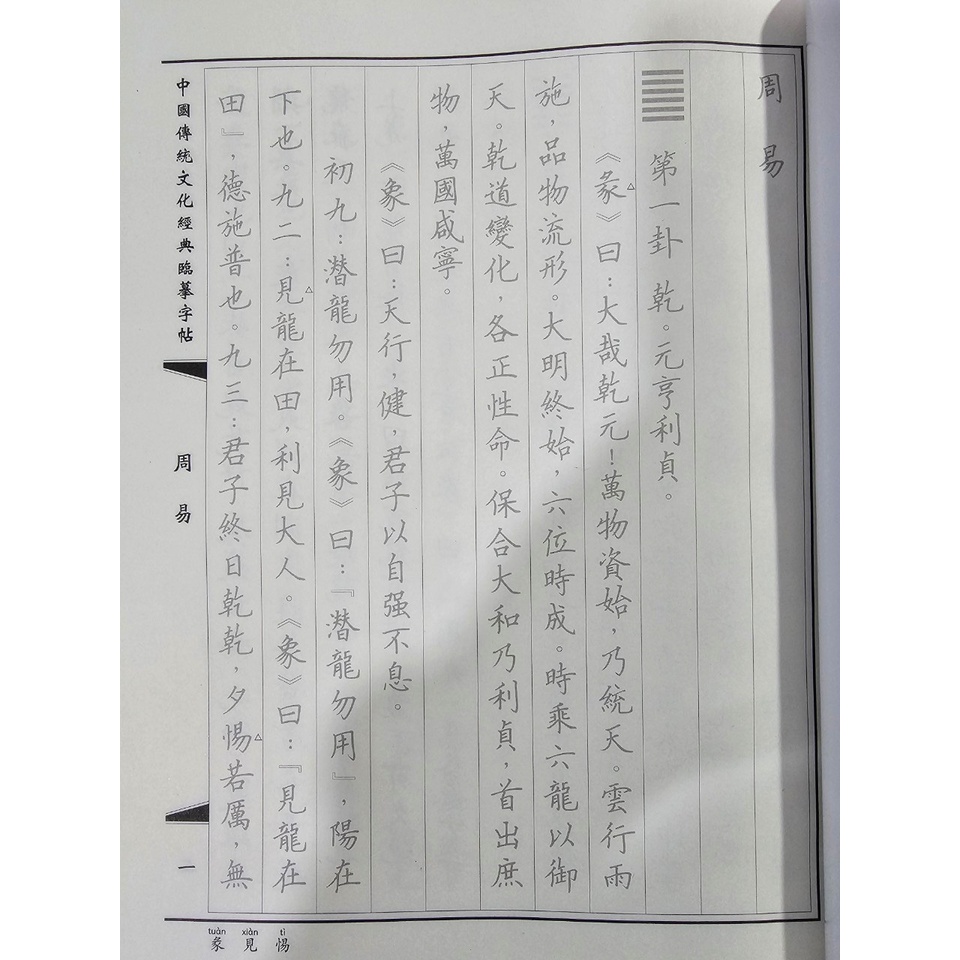 周易
第一卦 乾。元亨利貞。
《彖》曰：大哉乾元！萬物資始，乃統天。雲行雨
施，品物流形。大明終始，六位時成。時乘六龍以御
天。乾道變化，各正性命。保合大和乃利貞，首出庶
物，萬國咸寧。
《象》曰：天行，健，君子以自强不息。
初九：潛龍勿用。《象》曰：『潛龍勿用』，陽在
下也。九二：見龍在田，利見大人。《象》曰：『見龍在
田』，德施普也。九三：君子終日乾乾，夕惕若厲，無
中國傳統文化經典臨摹字帖
周易
一
tuàn xiàn tì
彖 見 惕